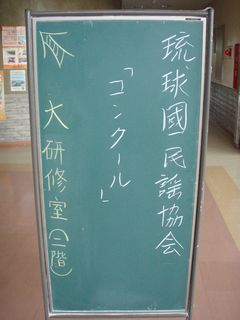 琉球國民謡協会
「コンクール」
大研修室(二階)